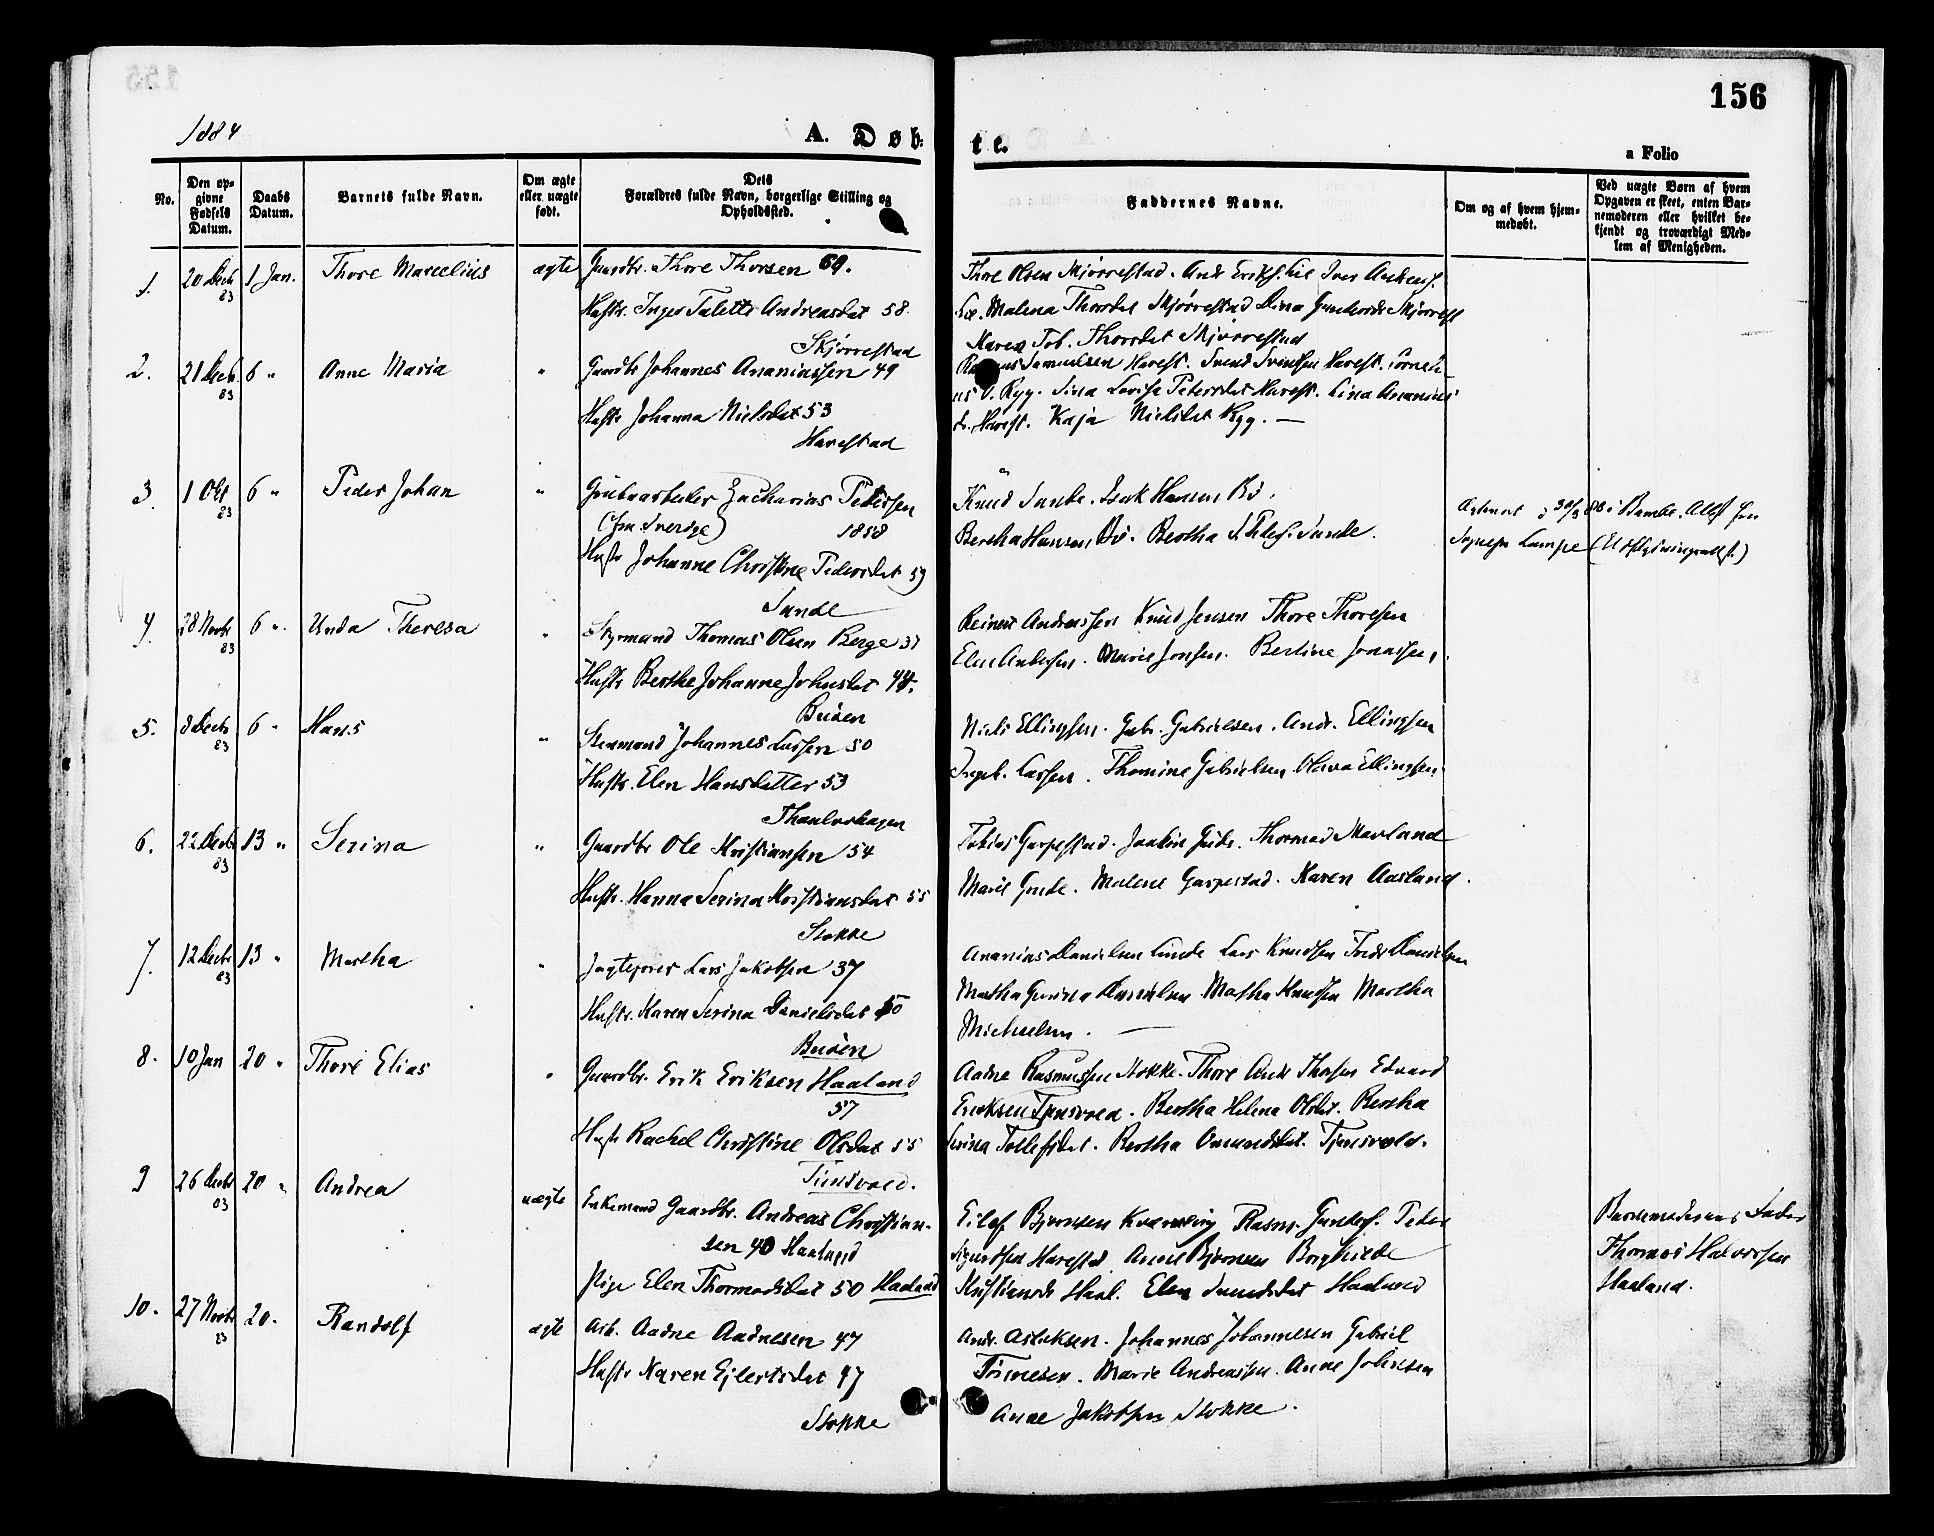 156
1884
A. Døbte.
a Folio
No.
Den opgivne Fødsels Datum.
Daabs Datum.
Barnets fulde Navn.
Om ægte eller uægte født.
Dets Forældres fulde Navn, borgerlige Stilling og Opholdssted.
Faddernes Navne.
Om og af hvem hjemmedøbt.
Ved uægte Børn af hvem Opgaven er skeet, enten Barnemoderen eller hvilket bekjendt og troværdigt Medlem af Menigheden.
1. 20 Decb 83 1 Jan. Thore Marcelius ægte Gaardbr. Thore Thorsen
Hustr. Inger Talette Andreasdat 58.
Skjørrestad
Thore Olsen Skjørrestad. Andr Eriks. Lie Iver Andreas.
Lie. Malena Thorsdat Skjørrestad Lina Skjørrest
Karen Tob. Thorsdat Skjørrestad
2. 21 Decb 83 6 " Anne Maria " Gaardbr Johannes Ananiassen 49
Hustr Johanna Nielsdat 53
Harestad
Samuelsen Harest. Svend Svendsen Harest.
us O. Ryg. Sina Lovise Petersdat Harest. Lina Ananias
d. Harest. Kaja Nielsdat Ryg. —
3. 1 Okt 83 6 " Peder Johan " Grubearbeider Zacharias Petersen
(fra Sverige) 1858
Hustr Johanne Christine Pedersdat 59
Sande
Knud Sande. Isak Hansen Bø.
Bertha Hansen Bø. Bertha Sande.
30/3 88 i Bamble. Att
4. 28 Novbr 83 6 " Unda Theresa " Styrmand Thomas Olsen Berge 37
Hustr Berthe Johanne Johnsdat 44.
Buøen
Reinert Andreassen Knud Jensen Thore Thoresen
Elen Andersen. Marie Jonsen. Bertine Jonassen.
5. 8 Decbr 83 6 " Hans " Steenmand Johannes Larsen 50
Hustr. Elen Hansdatter 53
Niels Ellingsen. Gabr. Gabrielsen. Andr. Ellingsen
Ingeb. Larsen. Thomine Gabrielsen Olava Ellingsen
6. 22 Decbr 83 13 " Serina " Gaardbr Ole Kristiansen 54
Hustr. Hanna Serina Kristiansdat 55
Stokke
Tobias Garpestad. Joakim Gude. Thormod Marland
Marie Gude. Malene Garpestad. Karen Aasland.
7. 12 Decbr 83 13 " Martha " Jagtefører Lars Jakobsen 37
Hustr. Karen Serina Danielsdat 50
Buøen
Ananias Danielsen Lunde Lars Knudsen Danielsen
Martha Gurina Danielsen Martha Knudsen Martha
Michaelsen. —
8. 10 Jan 20 " Thore Elias " Gaardbr. Erik Eriksen Haaland
57
Hustr Rachel Christine Olsdat 55
Tjensvold.
Aadne Rasmussen Stokke. Thore Andr Thorsen Edvard
Eriksen Tjensvold. Bertha Helena Olsdat. Bertha
Serina Tollefsdat. Bertha Omundsdat. Tjensvold.
9 26 Decbr 83 20 " Andrea uægte Enkemand Gaardbr. Andreas Christian-
sen 40 Haaland
Pige Elen Thormodsdat 50 Haaland
Eilef Bjørnsen Kvernevig Rasm. Gunders. Peder
Sigurdsen Harestad. Anne Bjørnsen Borghilde
Kristiansd. Haal. Elen Svendsdat Haaland
Barnemoderens Fader
Thormod Halvorsen
Haaland.
10. 27 Novbr 83 20. Randolf ægte Arb. Aadne Aadnesen 47
Hustr Karen Ejlertsdat 47
Stokke
Andr. Aslaksen. Johannes Johannesen Gabriel
Tønnesen. Marie Andreassen. Anne Johnsen
Anne Jakobsen Stokke.